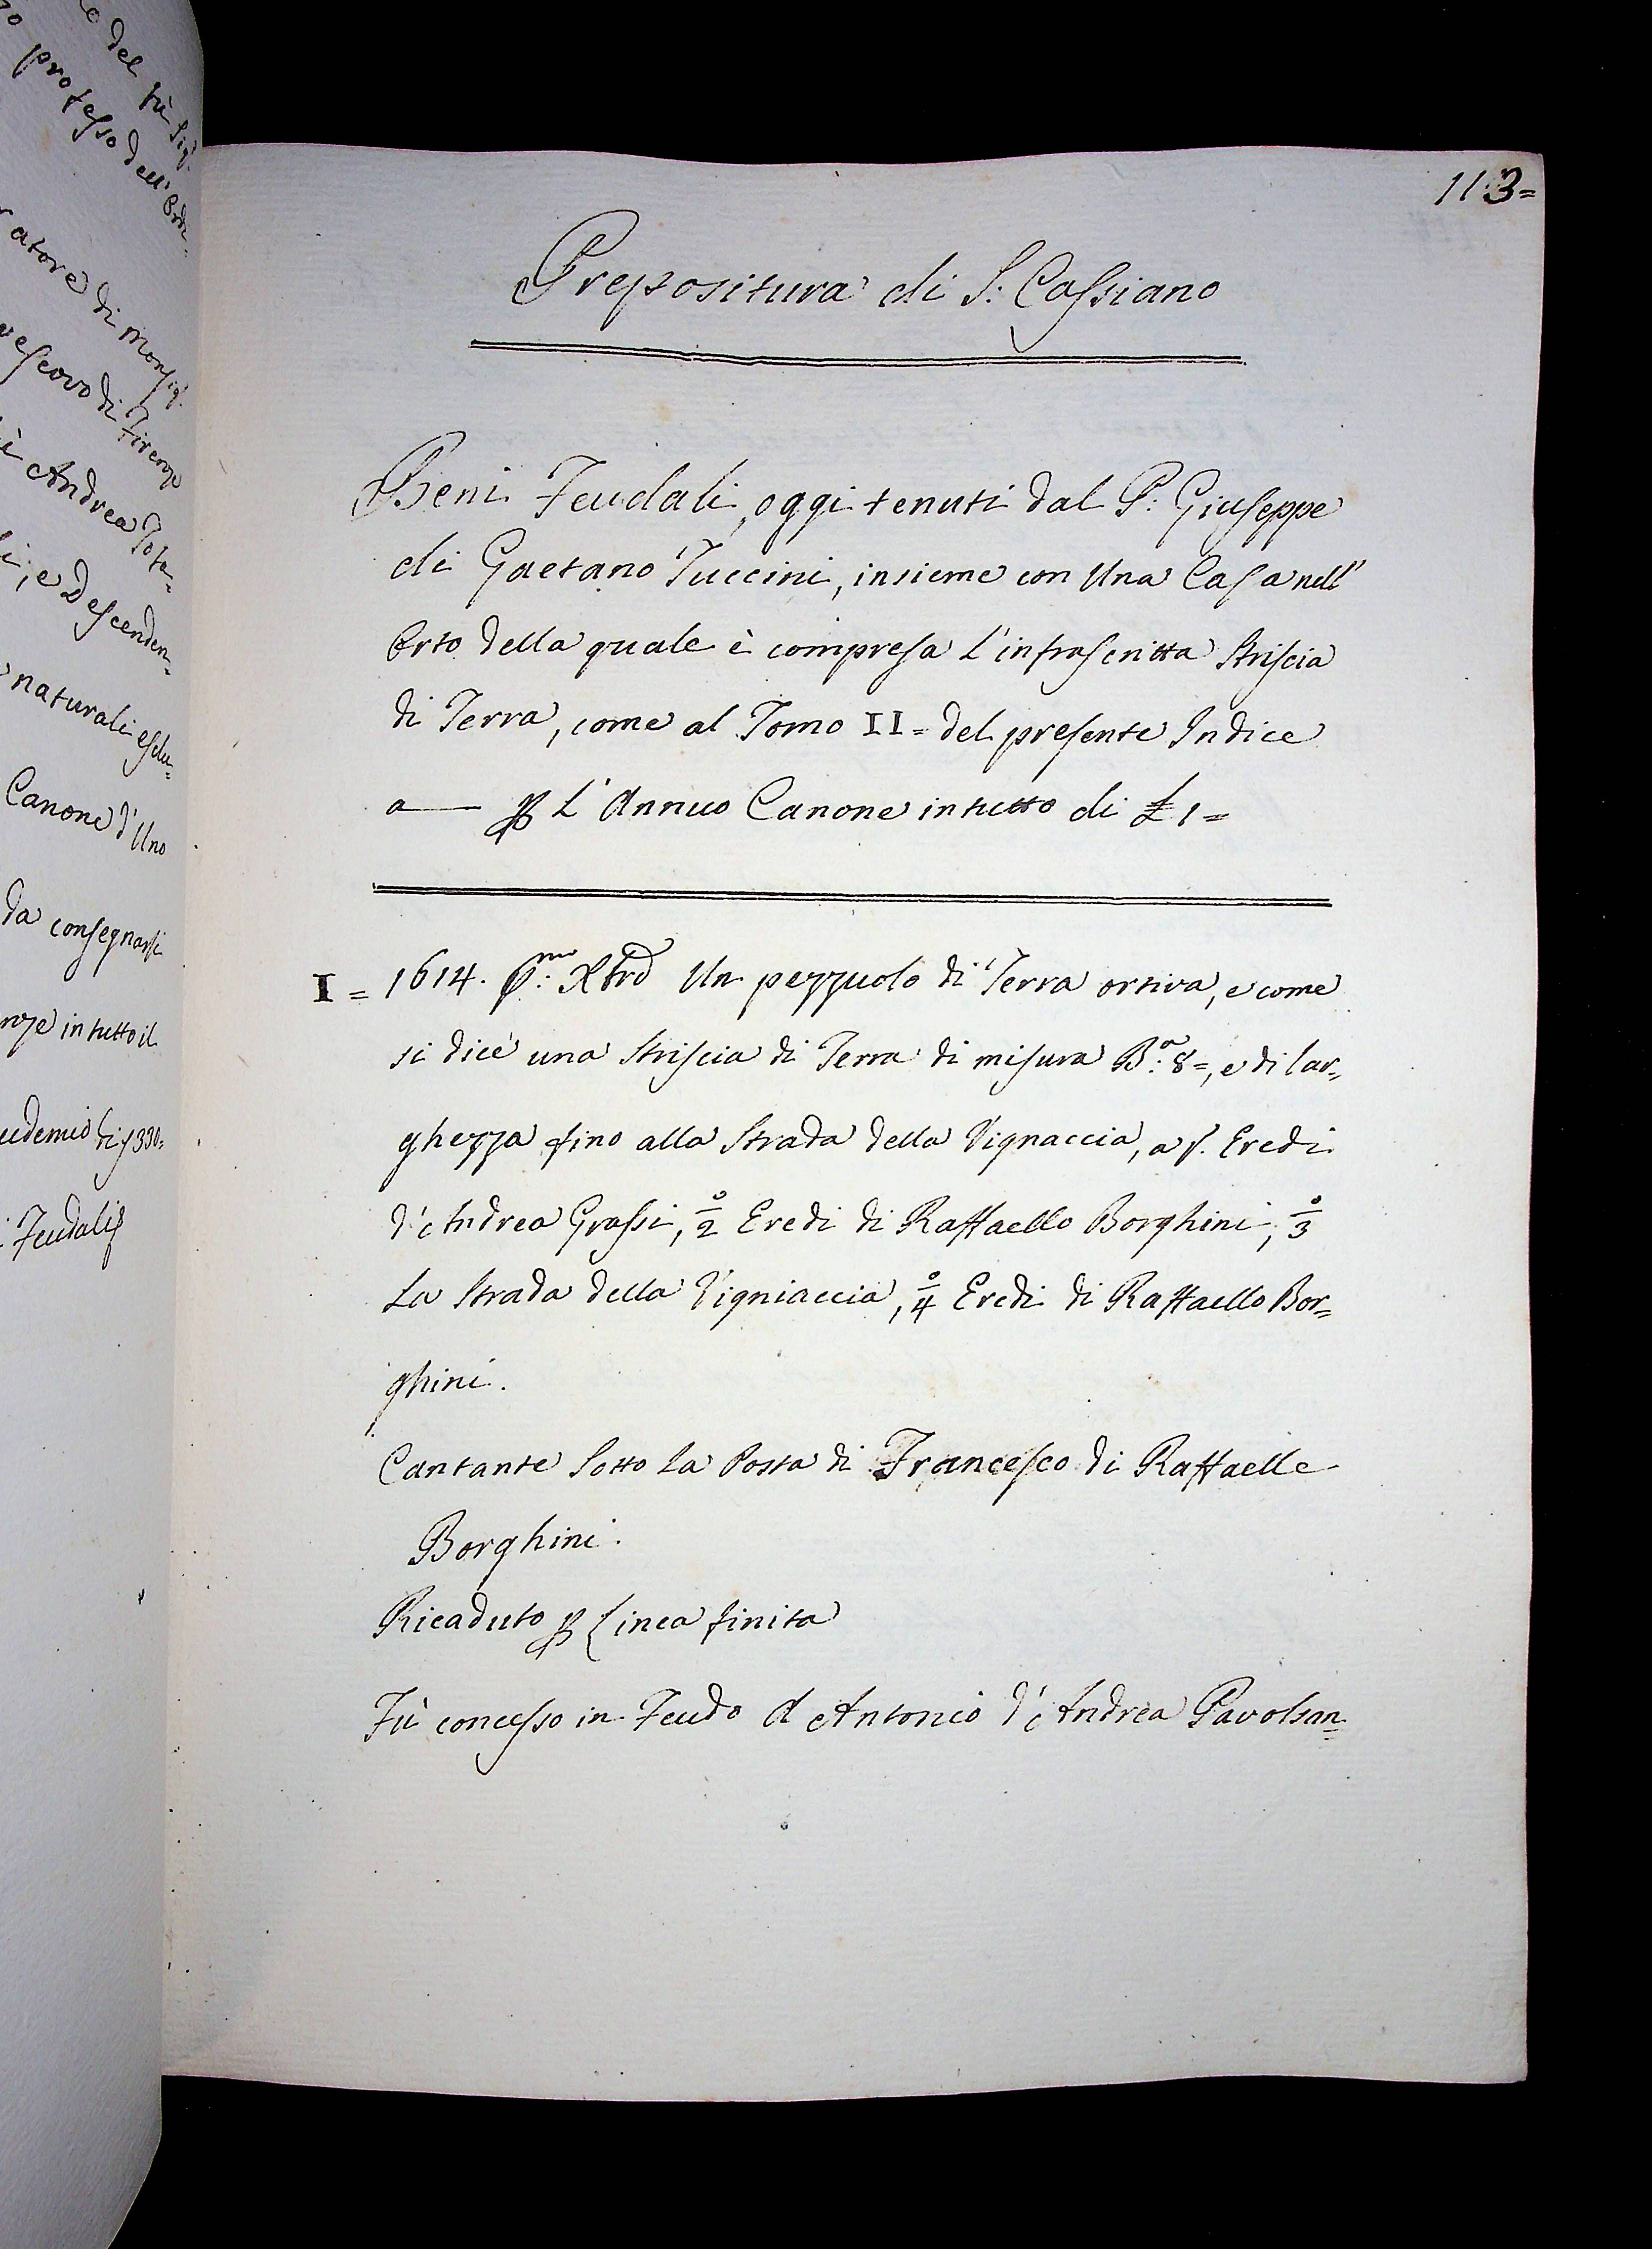 lo del fù Sig.
no professo dell' Ordi-
ratore di Monsig.
vescovo di Firenze
Andrea
i, e Descenden=
naturali esclu=
Canone d' Uno
da consegnarsi
in tutto il
udemio di
Feudali
113=
Prepositura di S: Cassiano
Beni Feudali, oggi tenuti dal P: Giuseppe
di Gaetano Tuccini, insieme con Una Casa nell'
Orto della quale è compresa L'infrascritta Striscia
di Terra, come al Tomo II= del presente Indice
a — p L' Annuo Canone in tutto di £ 1=
I= 1614. p:mo Xbre Un pezzuolo di Terra ortiva, e come
si dice una Striscia di Terra di misura B:a 8=, e di lar=
ghezza fino alla Strada della Vignaccia, a p. Eredi
d'Andrea Grassi, 2° Eredi di Raffaello Borghini, 3°
La Strada della Vigniaccia, 4° Eredi di Raffaello Bor=
ghini.
Cantante Sotto La Posta di Francesco di Raffaelle
Borghini.
Ricaduto p Linea finita
Fù concesso in Feudo A Antonio d'Andrea Pavolsan=